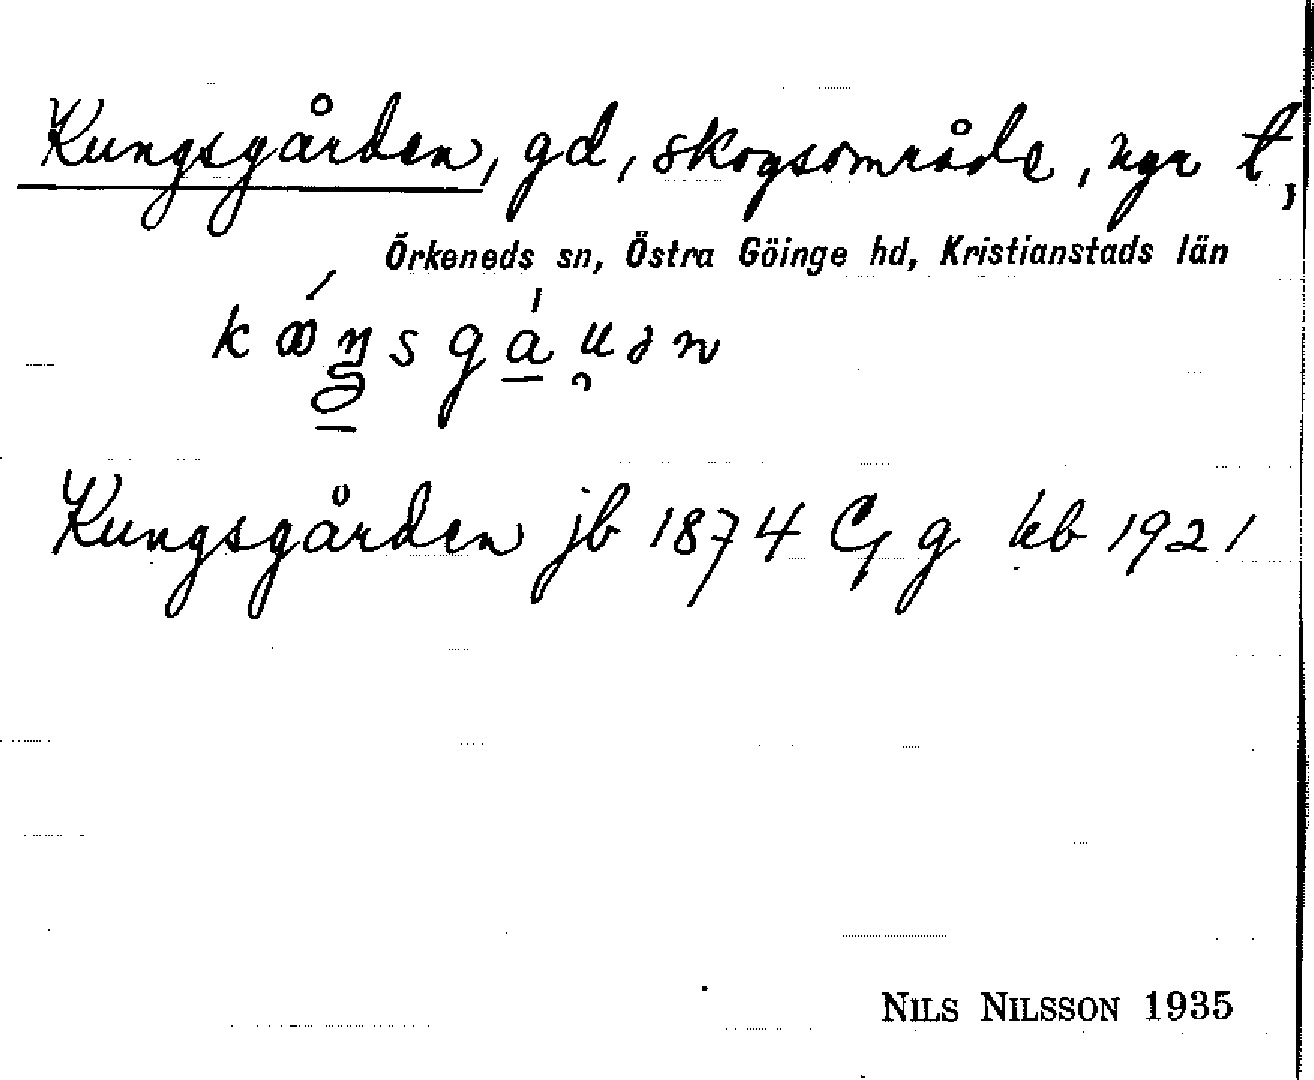 Kungsgården, gd, skogsområde, ngr t,
Örkeneds sn, Östra Göinge hd, Kristianstads län
Kungsgården jb 1874 Cg g kb 1921
NILS NILSSON 1935